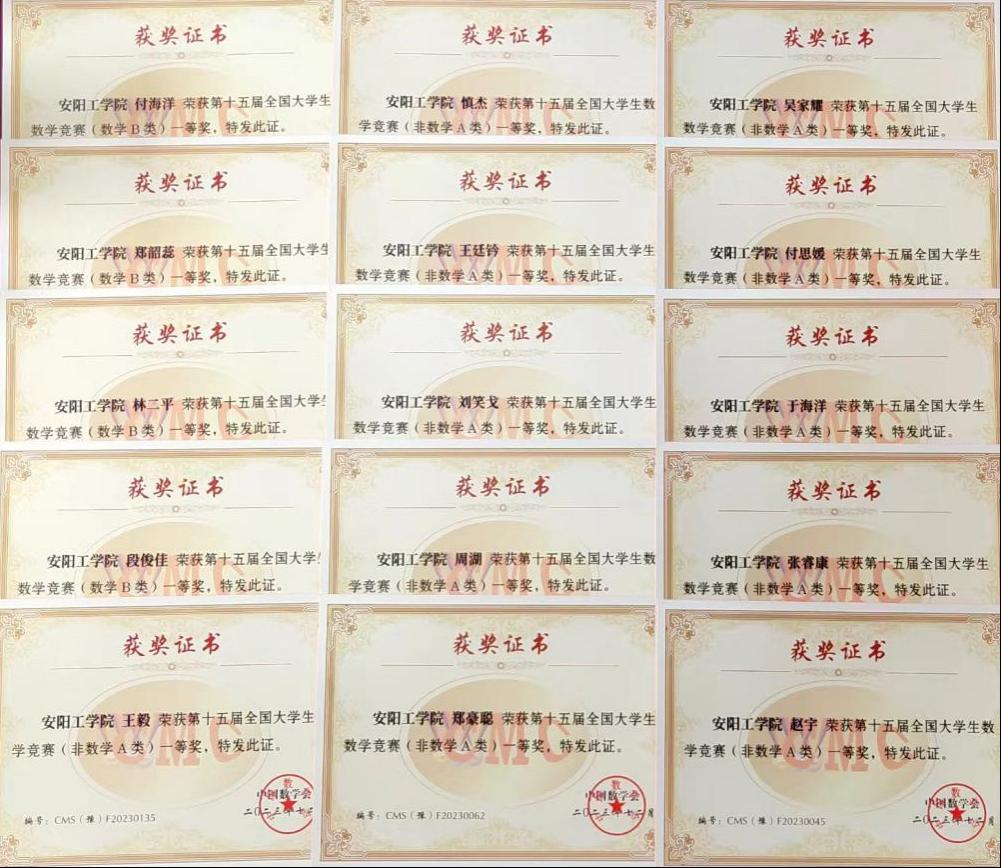 获奖证书
安阳工学院 付海洋 荣获第十五届全国大学生
数学竞赛（数学B类）一等奖，特发此证。
获奖证书
安阳工学院 慎杰 荣获第十五届全国大学生数
学竞赛（非数学A类）一等奖，特发此证。
获奖证书
安阳工学院 吴家耀 荣获第十五届全国大学生
数学竞赛（非数学A类）一等奖，特发此证。
获奖证书
安阳工学院 郑韶蕊 荣获第十五届全国大学生
数学竞赛（数学B类）一等奖，特发此证。
获奖证书
安阳工学院 王廷钤 荣获第十五届全国大学生
数学竞赛（非数学A类）一等奖，特发此证。
获奖证书
安阳工学院 付思媛 荣获第十五届全国大学生
数学竞赛（非数学A类）一等奖，特发此证。
获奖证书
安阳工学院 林二平 荣获第十五届全国大学生
数学竞赛（数学B类）一等奖，特发此证。
获奖证书
安阳工学院 刘笑戈 荣获第十五届全国大学生
数学竞赛（非数学A类）一等奖，特发此证。
获奖证书
安阳工学院 于海洋 荣获第十五届全国大学生
数学竞赛（非数学A类）一等奖，特发此证。
获奖证书
安阳工学院 段俊佳 荣获第十五届全国大学
数学竞赛（数学B类）一等奖，特发此证。
获奖证书
安阳工学院 周湖 荣获第十五届全国大学生数
学竞赛（非数学A类）一等奖，特发此证。
获奖证书
安阳工学院 张睿康 荣获第十五届全国大学生
数学竞赛（非数学A类）一等奖，特发此证。
获奖证书
安阳工学院 王毅 荣获第十五届全国大学生
学竞赛（非数学A类）一等奖，特发此证。
中国数学会
二〇二三年十二月
编号：CMS（豫）F20230135
获奖证书
安阳工学院 郑豪聪 荣获第十五届全国大学生
数学竞赛（非数学A类）一等奖，特发此证。
中国数学会
二〇二三年十二月
编号：CMS（豫）F20230062
获奖证书
安阳工学院 赵宇 荣获第十五届全国大学生数
学竞赛（非数学A类）一等奖，特发此证。
中国数学会
二〇二三年十二月
编号：CMS（豫）F20230045